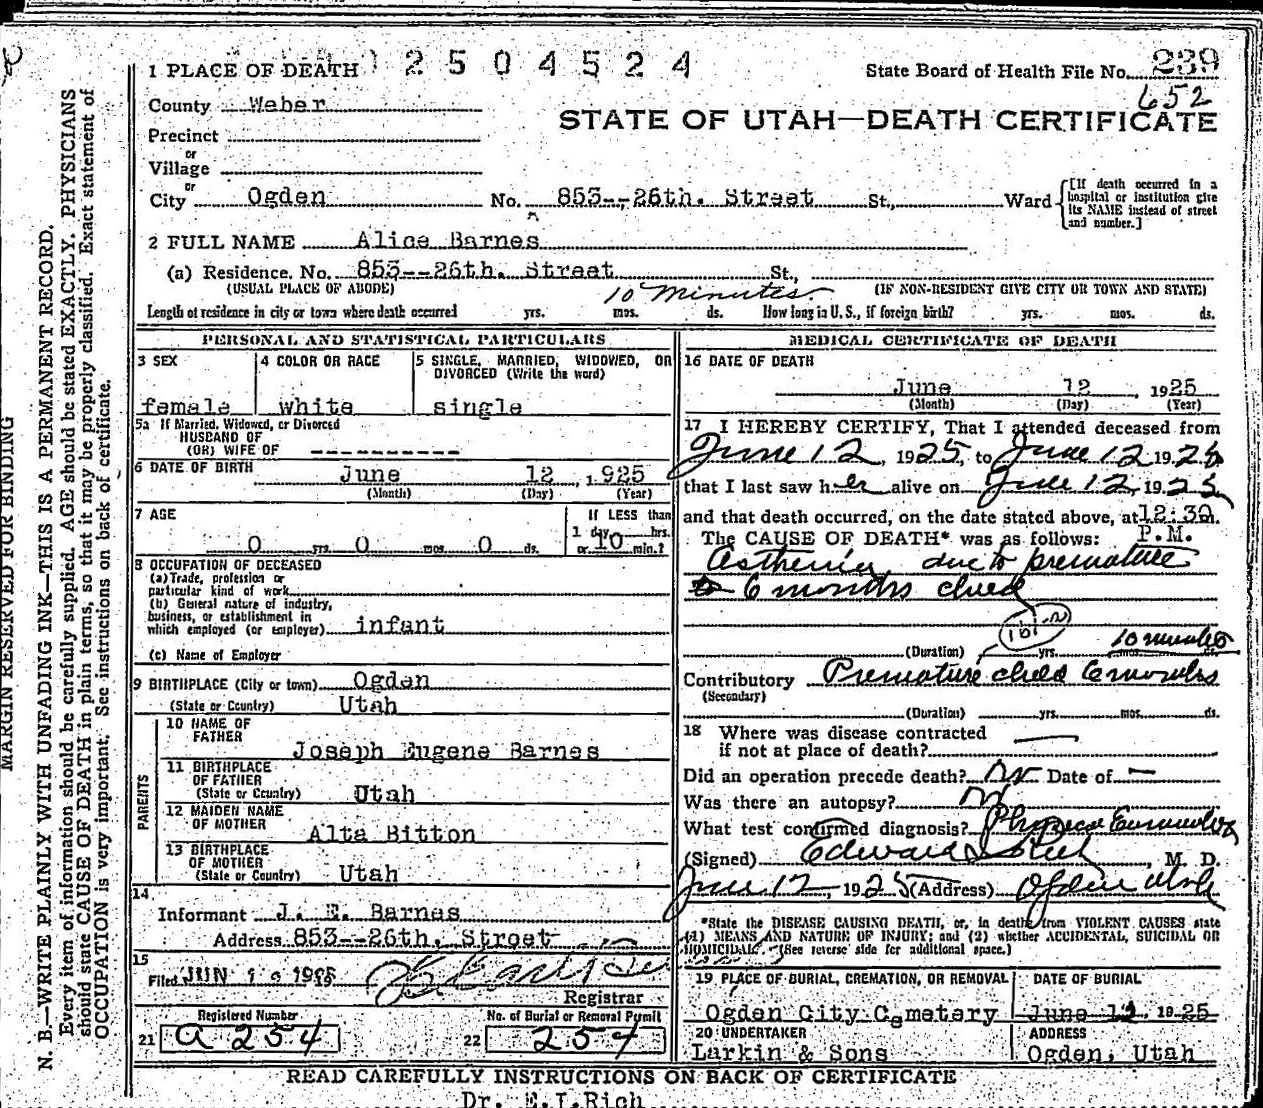 1 PLACE OF DEATH 2504524 State Board of Health File No. 239
652
County Weber
STATE OF UTAH—DEATH CERTIFICATE
Precinct
or
Village
or
City Ogden No. 853--26th. Street St., Ward [If death occurred in a hospital or institution give its NAME instead of street and number.]
2 FULL NAME Alice Barnes
(a) Residence. No. 853--26th. Street St.,
(USUAL PLACE OF ABODE) (IF NON-RESIDENT GIVE CITY OR TOWN AND STATE)
10 minutes
Length of residence in city or town where death occurred yrs. mos. ds. How long in U. S., if foreign birth? yrs. mos. ds.
PERSONAL AND STATISTICAL PARTICULARS
3 SEX
female
4 COLOR OR RACE
white
5 SINGLE, MARRIED, WIDOWED, OR
DIVORCED (Write the word)
single
5a If Married, Widowed, or Divorced
HUSBAND OF
(OR) WIFE OF ----------
6 DATE OF BIRTH June 12, 1925
(Month) (Day) (Year)
7 AGE
0 yrs. 0 mos. 0 ds.
If LESS than
1 day hrs.
or 10 min.?
8 OCCUPATION OF DECEASED
(a) Trade, profession or
particular kind of work
(b) General nature of industry,
business, or establishment in
which employed (or employer) infant
(c) Name of Employer
9 BIRTHPLACE (City or town) Ogden
(State or Country) Utah
PARENTS
10 NAME OF
FATHER
Joseph Eugene Barnes
11 BIRTHPLACE
OF FATHER
(State or Country) Utah
12 MAIDEN NAME
OF MOTHER
Alta Bitton
13 BIRTHPLACE
OF MOTHER
(State or Country) Utah
14
Informant J. E. Barnes
Address 853--26th. Street
15
Filed JUN 1 1925
Registrar
Registered Number
21 A 254
No. of Burial or Removal Permit
22 254
MEDICAL CERTIFICATE OF DEATH
16 DATE OF DEATH
June 12, 1925
(Month) (Day) (Year)
17 I HEREBY CERTIFY, That I attended deceased from
June 12, 1925, to June 12 1925
that I last saw her alive on June 12, 1925,
and that death occurred, on the date stated above, at 12:30 m.
The CAUSE OF DEATH* was as follows: P.M.
Asthenia, due to premature
6 months child
(Duration) yrs. mos. ds. 10 minutes
Contributory Premature child 6 months
(Secondary)
(Duration) yrs. mos. ds.
18 Where was disease contracted
if not at place of death?
Did an operation precede death? No Date of —
Was there an autopsy? No
What test confirmed diagnosis? Physical
(Signed) Edward I Rich, M. D.
June 12, 1925 (Address) Ogden Utah
*State the DISEASE CAUSING DEATH, or, in deaths from VIOLENT CAUSES state
(1) MEANS AND NATURE OF INJURY; and (2) whether ACCIDENTAL, SUICIDAL OR
HOMICIDAL. (See reverse side for additional space.)
19 PLACE OF BURIAL, CREMATION, OR REMOVAL
Ogden City Cemetery
DATE OF BURIAL
June 12, 1925
20 UNDERTAKER
Larkin & Sons
ADDRESS
Ogden, Utah
READ CAREFULLY INSTRUCTIONS ON BACK OF CERTIFICATE
Dr. E.I.Rich
MARGIN RESERVED FOR BINDING
N. B.—WRITE PLAINLY WITH UNFADING INK—THIS IS A PERMANENT RECORD.
Every item of information should be carefully supplied. AGE should be stated EXACTLY. PHYSICIANS
should state CAUSE OF DEATH in plain terms, so that it may be properly classified. Exact statement of
OCCUPATION is very important. See instructions on back of certificate.